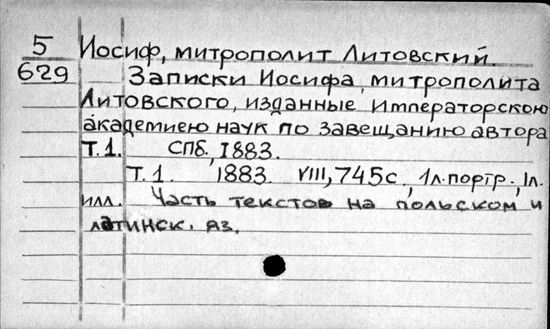 5 Иосиф, митрополит Литовский.
629 Записки Иосифа, митрополита
Литовского, изданные императорскою
академиею наук по завещанию автора
Т.1. СПб, 1883.
Т.1. 1883. VIII, 745с., 1л.портр., 1л.
илл. Часть текстов на польском и
латинск. яз.